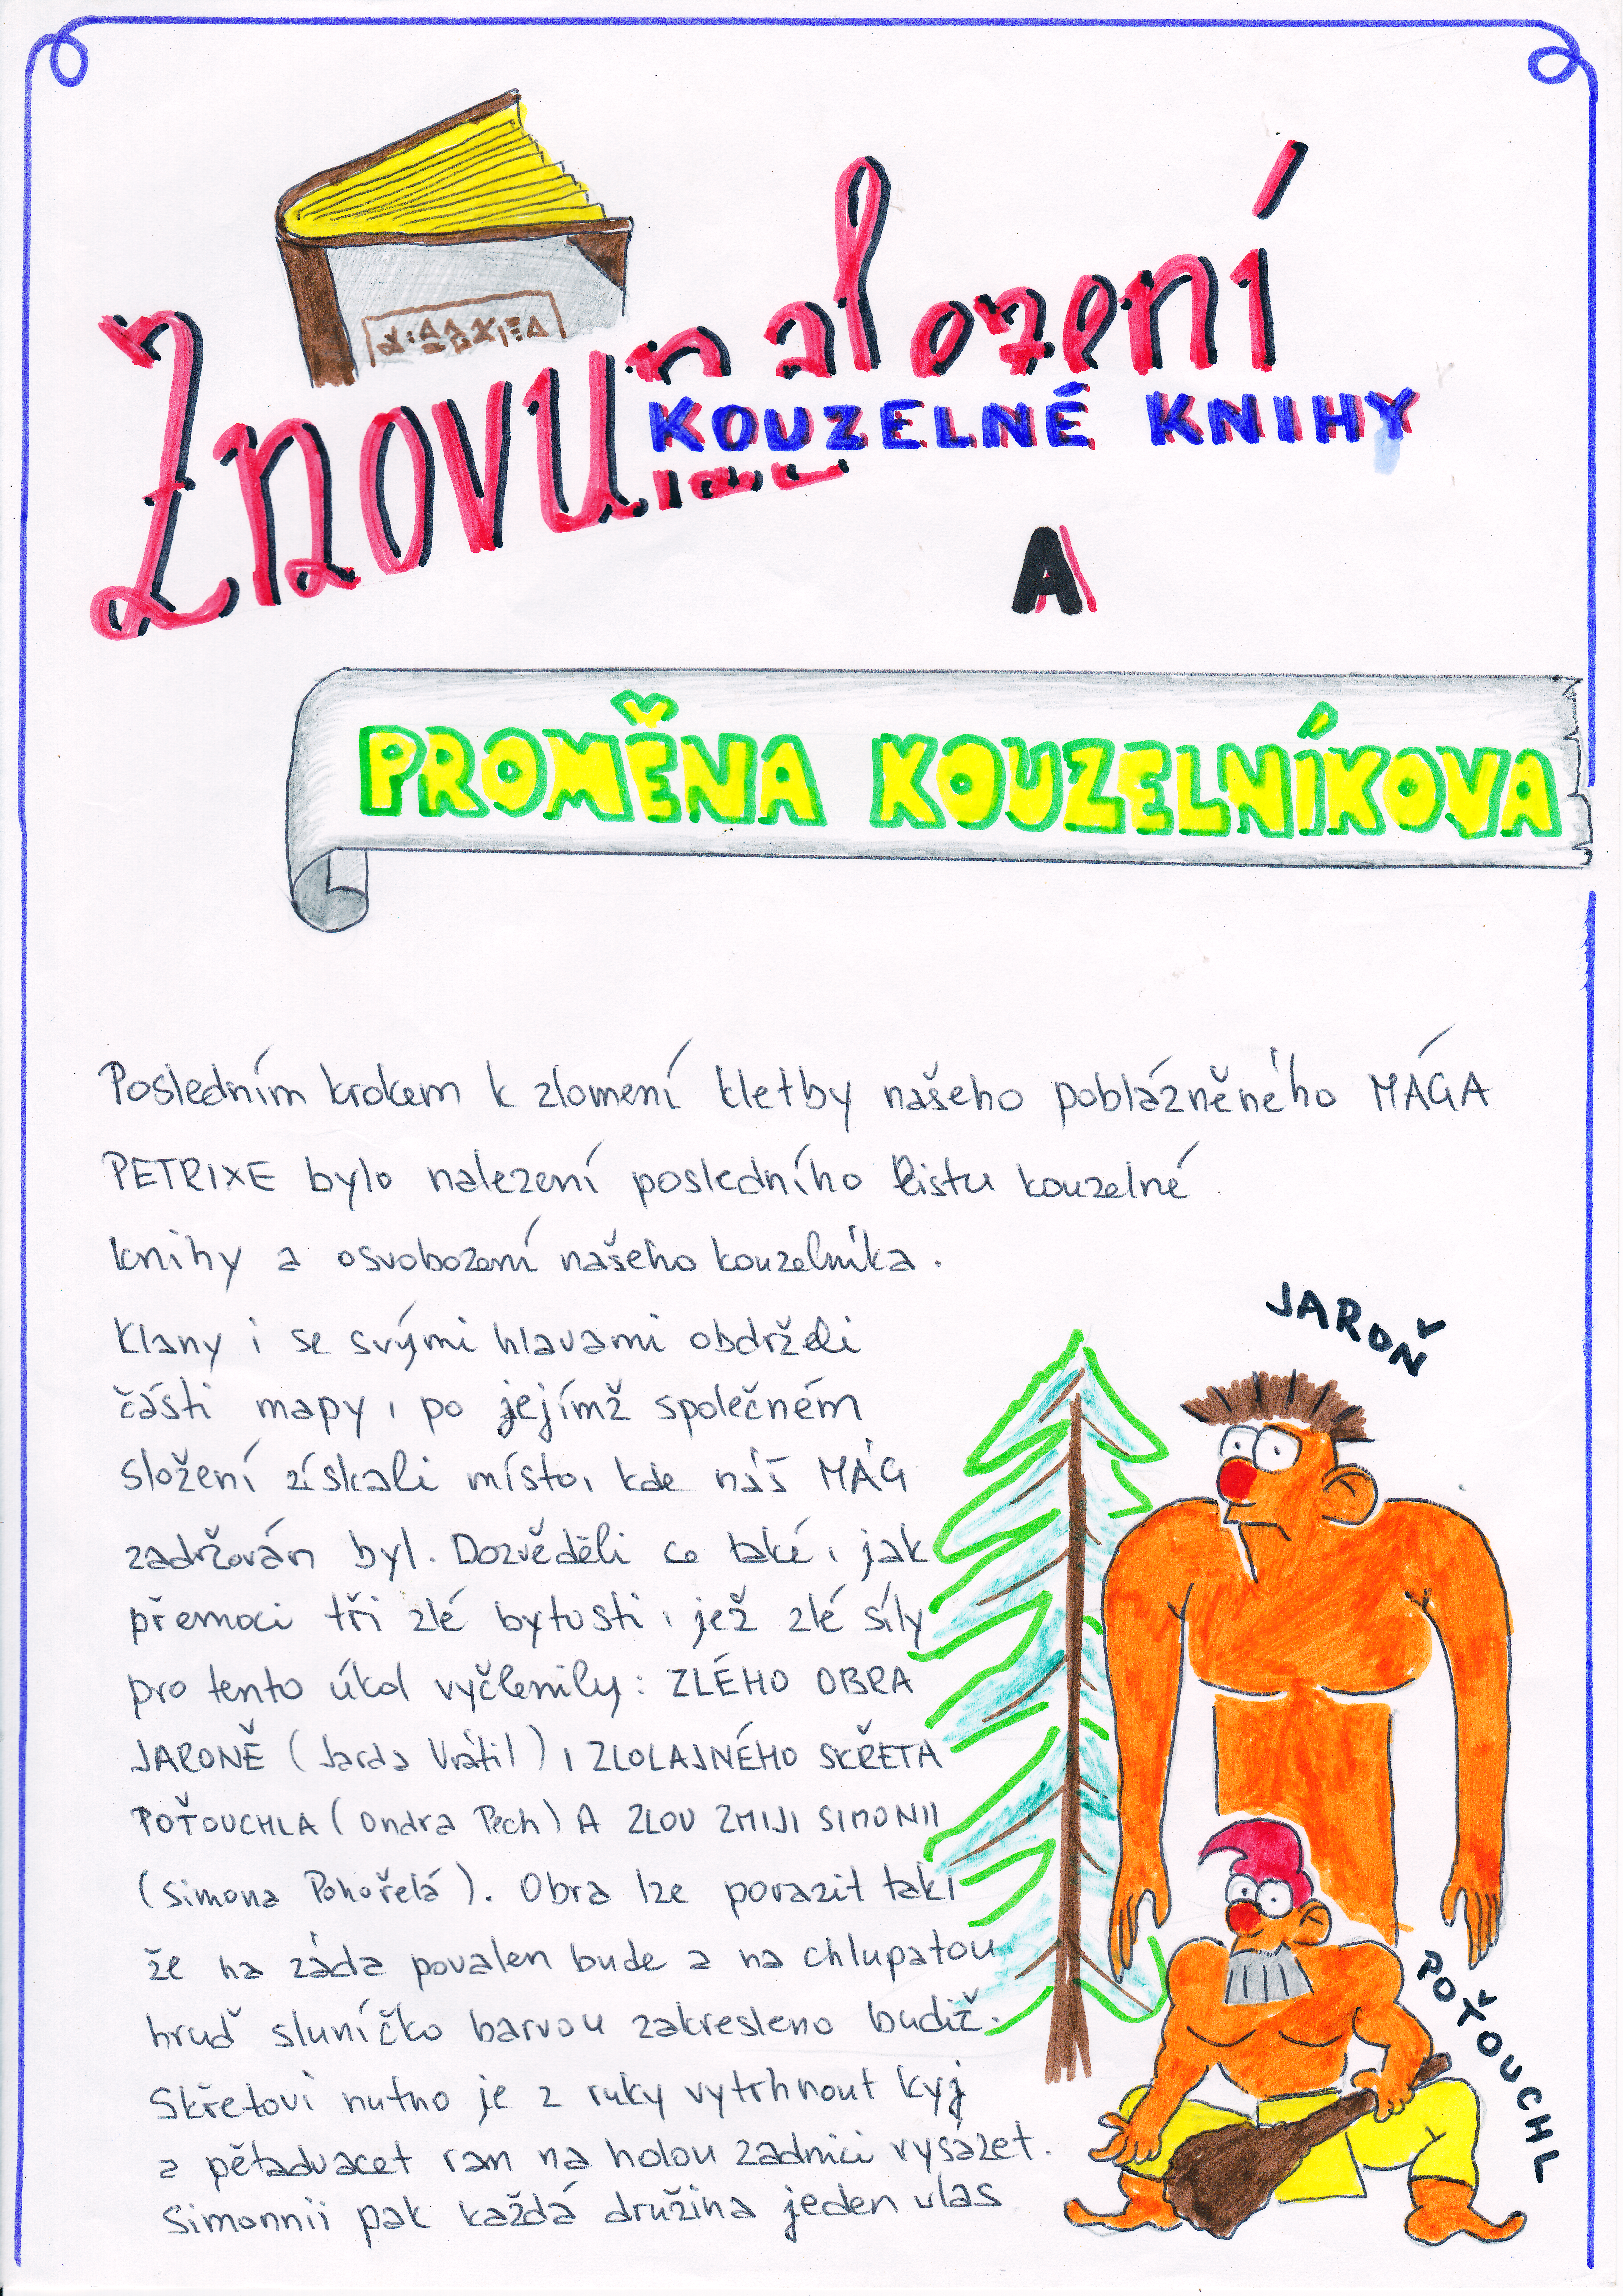 Znovunalození
KOUZELNÉ KNIHY
A
PROMĚNA KOUZELNÍKOVA
Posledním krokem k zlomení kletby našeho poblázněného MÁGA
PETRIXE bylo nalezení posledního listu kouzelné
knihy a osvobození našeho kouzelníka.
Klany i se svými hlavami obdrželi
části mapy, po jejímž společném
složení získali místo, kde náš MÁG
zadržován byl. Dozvěděli se také, jak
přemoci tři zlé bytosti, jež zlé síly
pro tento úkol vyčlenily: ZLÉHO OBRA
JARONĚ (Jarda Vrátil), ZLOLAJNÉHO SKŘETA
POŤOUCHLA (Ondra Pech) A ZLOU ZMIJI SIMONII
(Simona Pohořelá). Obra lze porazit tak,
že na záda povalen bude a na chlupatou
hruď sluníčko barvou zakresleno budiž.
Skřetovi nutno je z ruky vytrhnout kyj
a pětadvacet ran na holou zadnici vysázet.
Simonnii pak každá družina jeden vlas
JAROŇ
POŤOUCHL